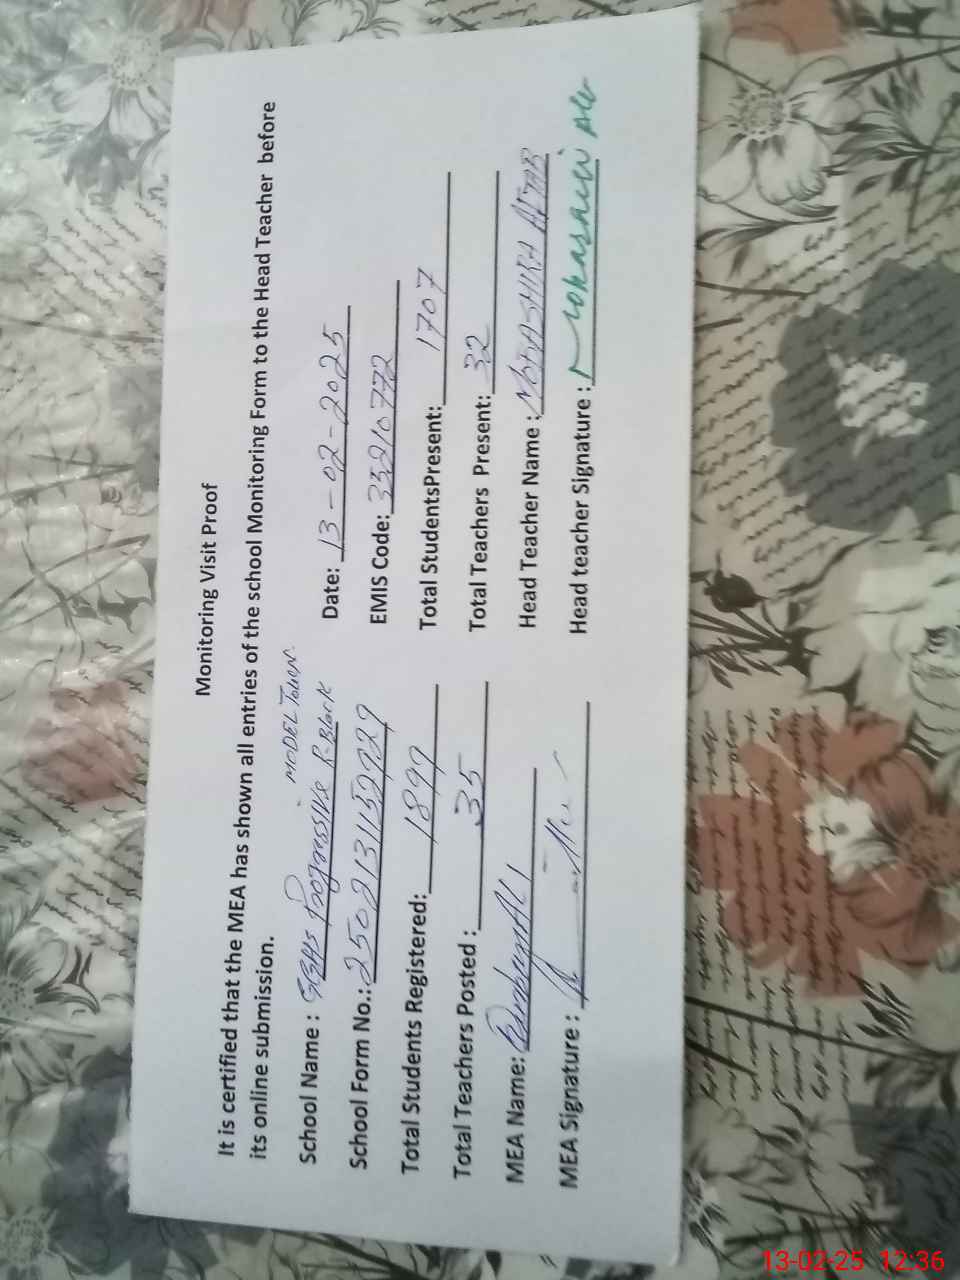 Monitoring Visit Proof
It is certified that the MEA has shown all entries of the school Monitoring Form to the Head Teacher before
its online submission.
MODEL Town
School Name : GGHS Progressive R-Block Date: 13-02-2025
School Form No.: EMIS Code: 35210772
Total Students Registered: 1899 Total StudentsPresent: 1707
Total Teachers Posted : 35 Total Teachers Present: 32
MEA Name: Head Teacher Name : AFTAB
MEA Signature : Head teacher Signature :
13-02-25 12:36